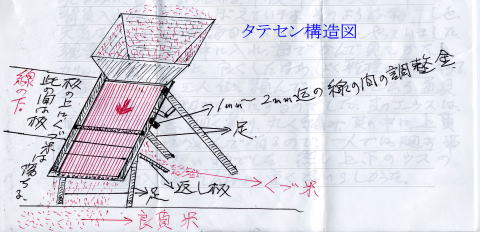 タテセン構造図
1mm〜2mm迄の線の間の調整金
足
くづ米
返し板
足
良質米
線の下
此の間は板
板の上にくづ米は落ちる